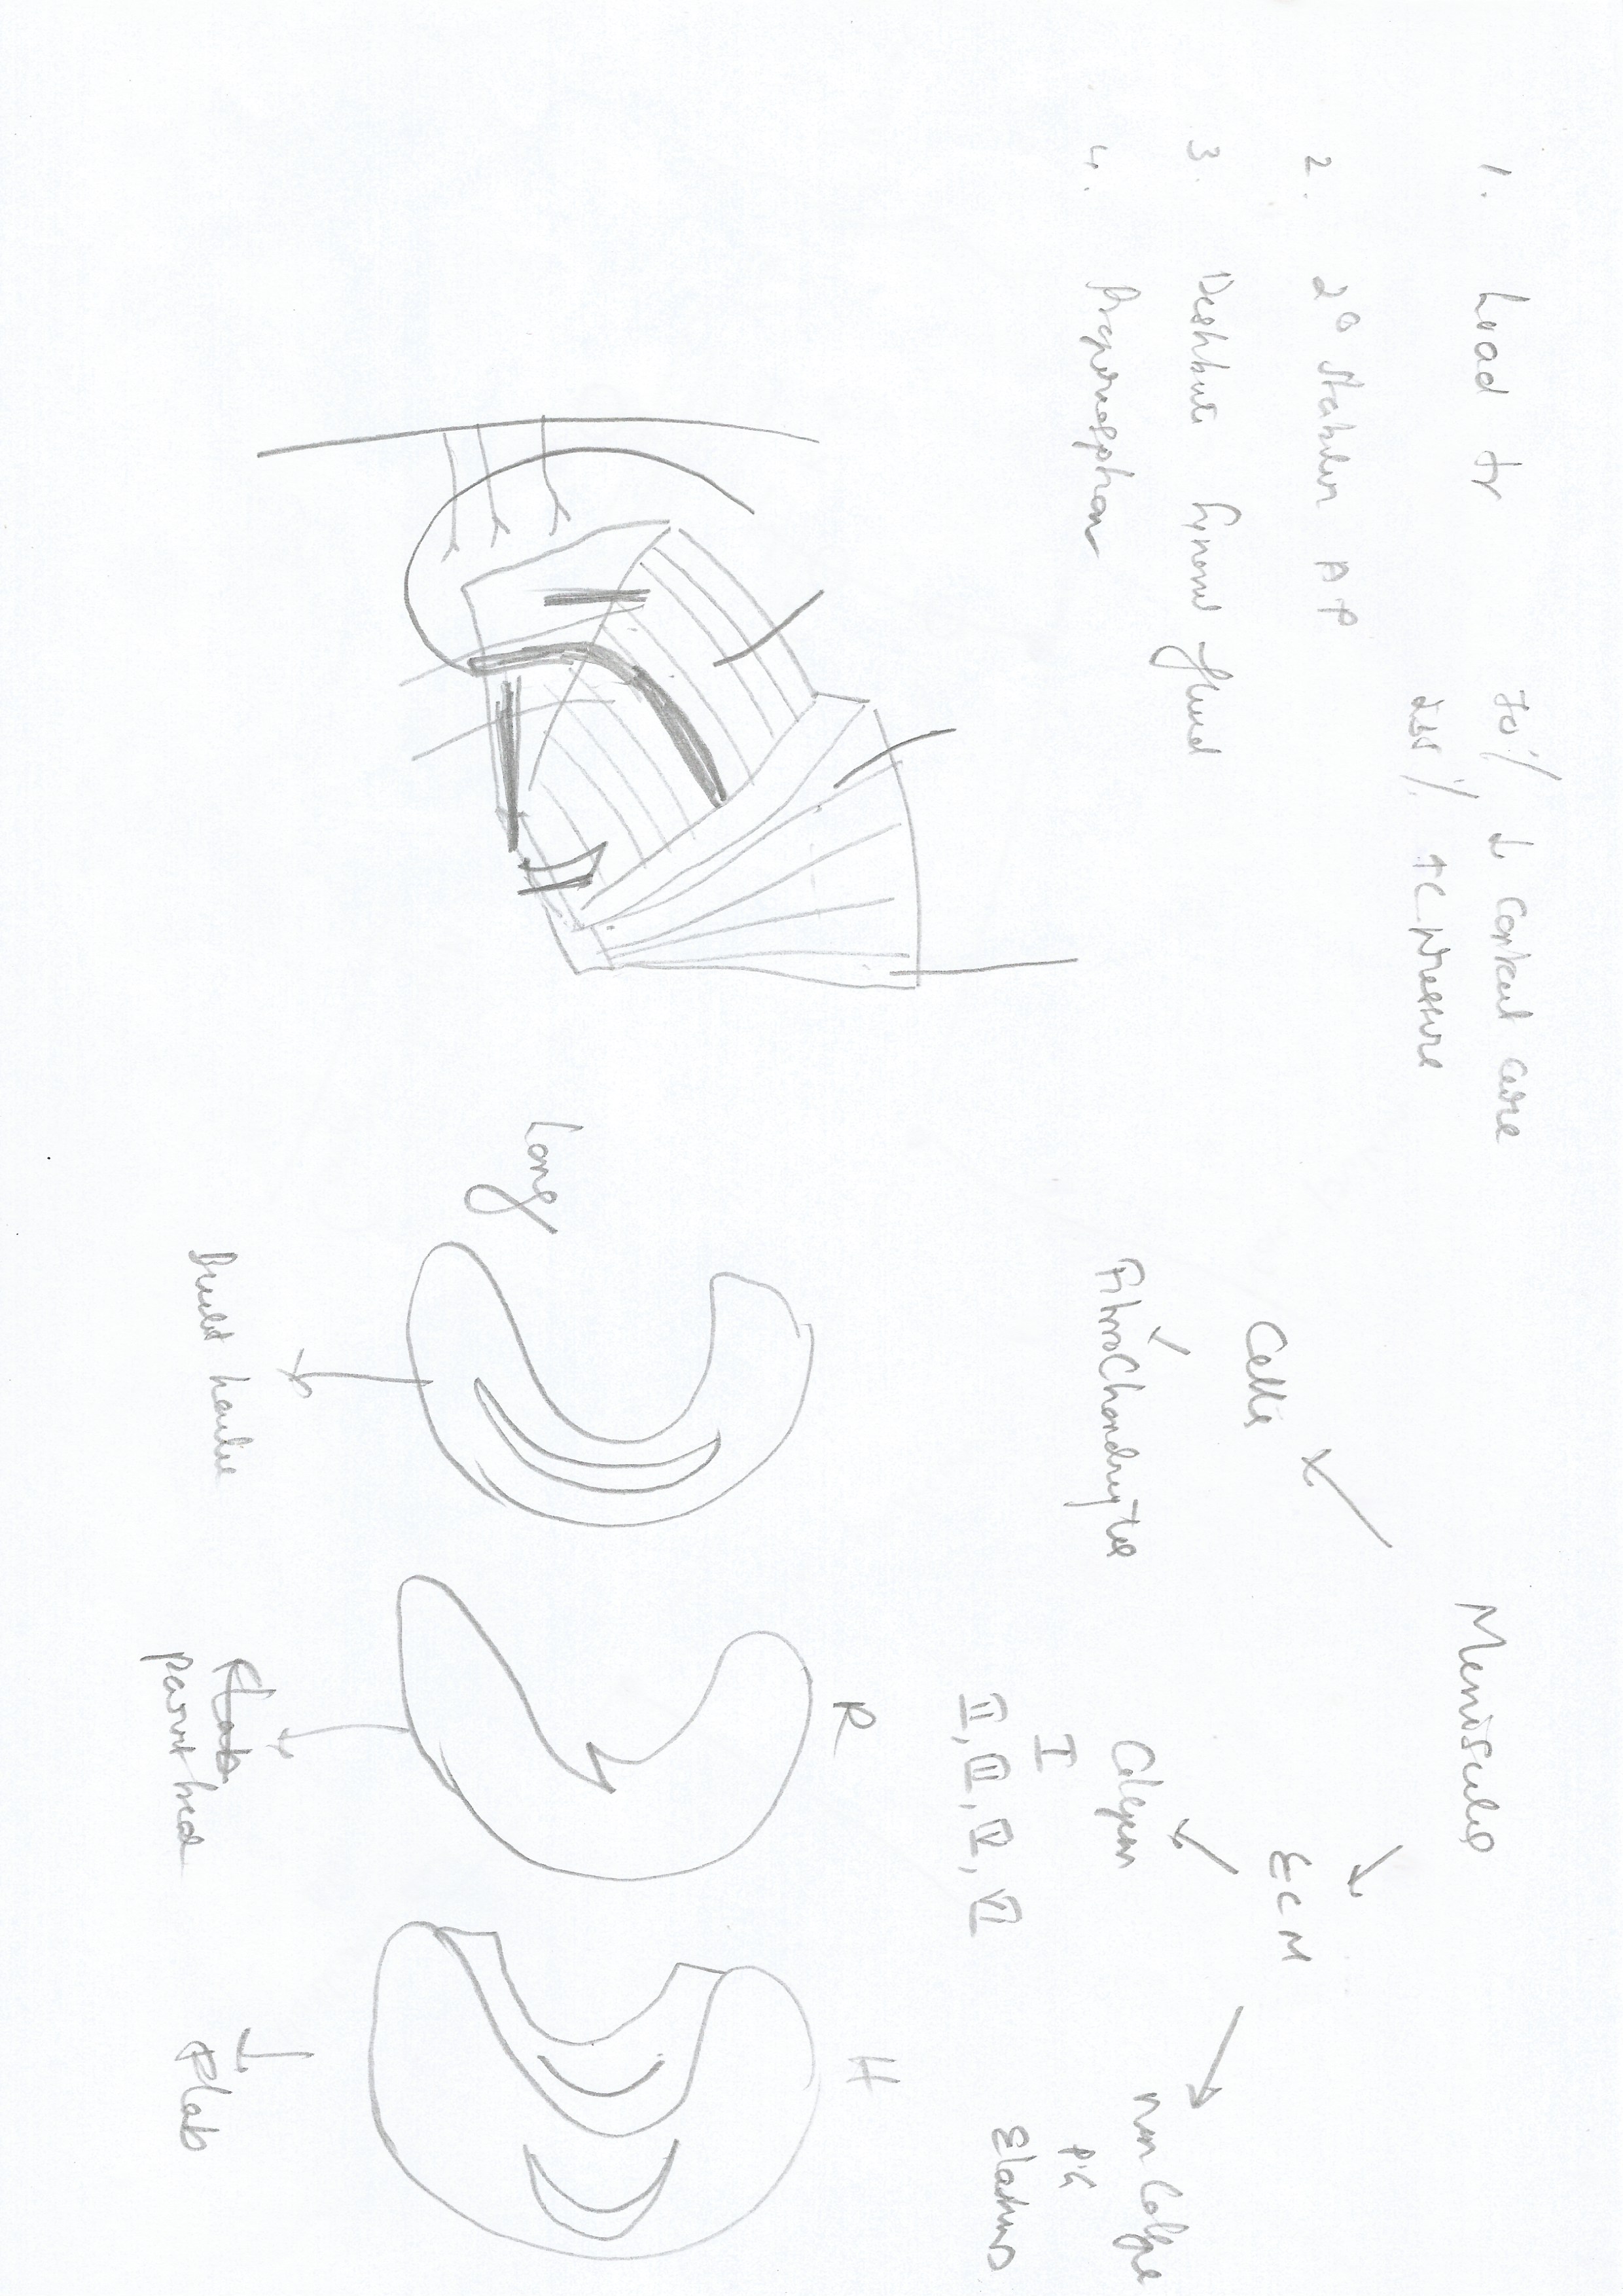 1. Load tr
70% ↓ Contact area
% ↑ C pressure
2. 2° Stabiliser AP
3. Distribute Synovial fluid
4. Proprioception
Meniscus
Cells
ECM
Fibrochondrocyte
Collagen
I
II, III, V, VI
non Collagen
PG
Elastin
Long
R
H
Bucket handle
Parrot beak
Flab